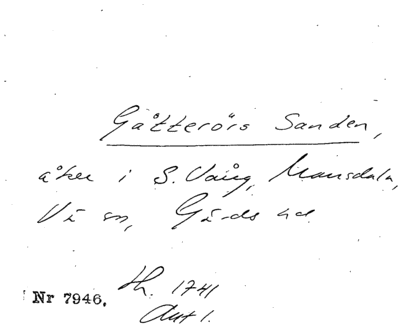 Gåtterörs Sanden,
åker i S. Vång, Maunsdala,
Vä sn, Gärds hd.
Nr 7946.
Lh. 1741
Akt 1.